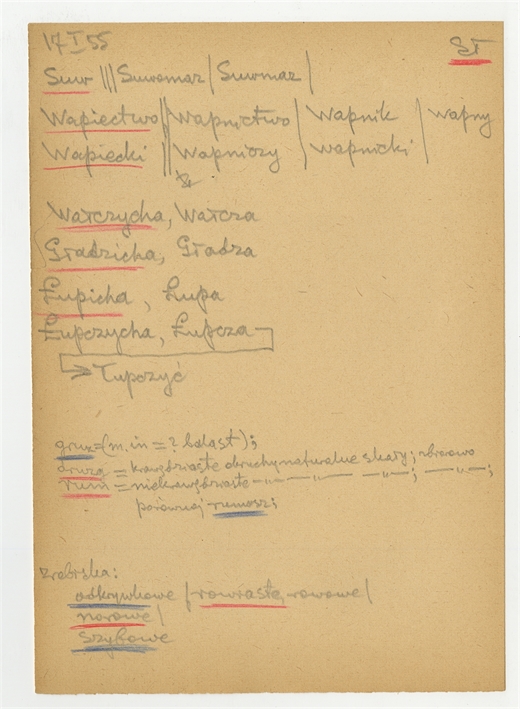 17 I 55
SŁ
Suw ||| Suwomaz / Suwmaz /
Wapiectwo || Wapnictwo / Wapnik / wapny
Wapiecki || Wapniczy / wapnicki /
Warczycha, Warcza
Gładzicha, Gładza
Łupicha, Łupa
Łupczycha, Łupcza
→ Łupczyć
gruz = (m. in = ? balast);
druzg = krawędziaste okruchy naturalne skały; zbiorowo
rum = niekrawędziaste -"- -"- -"- ; -"- ;
porównaj rumosz;
odkrywkowe / rowiaste, rowowe /
norowe /
szybowe